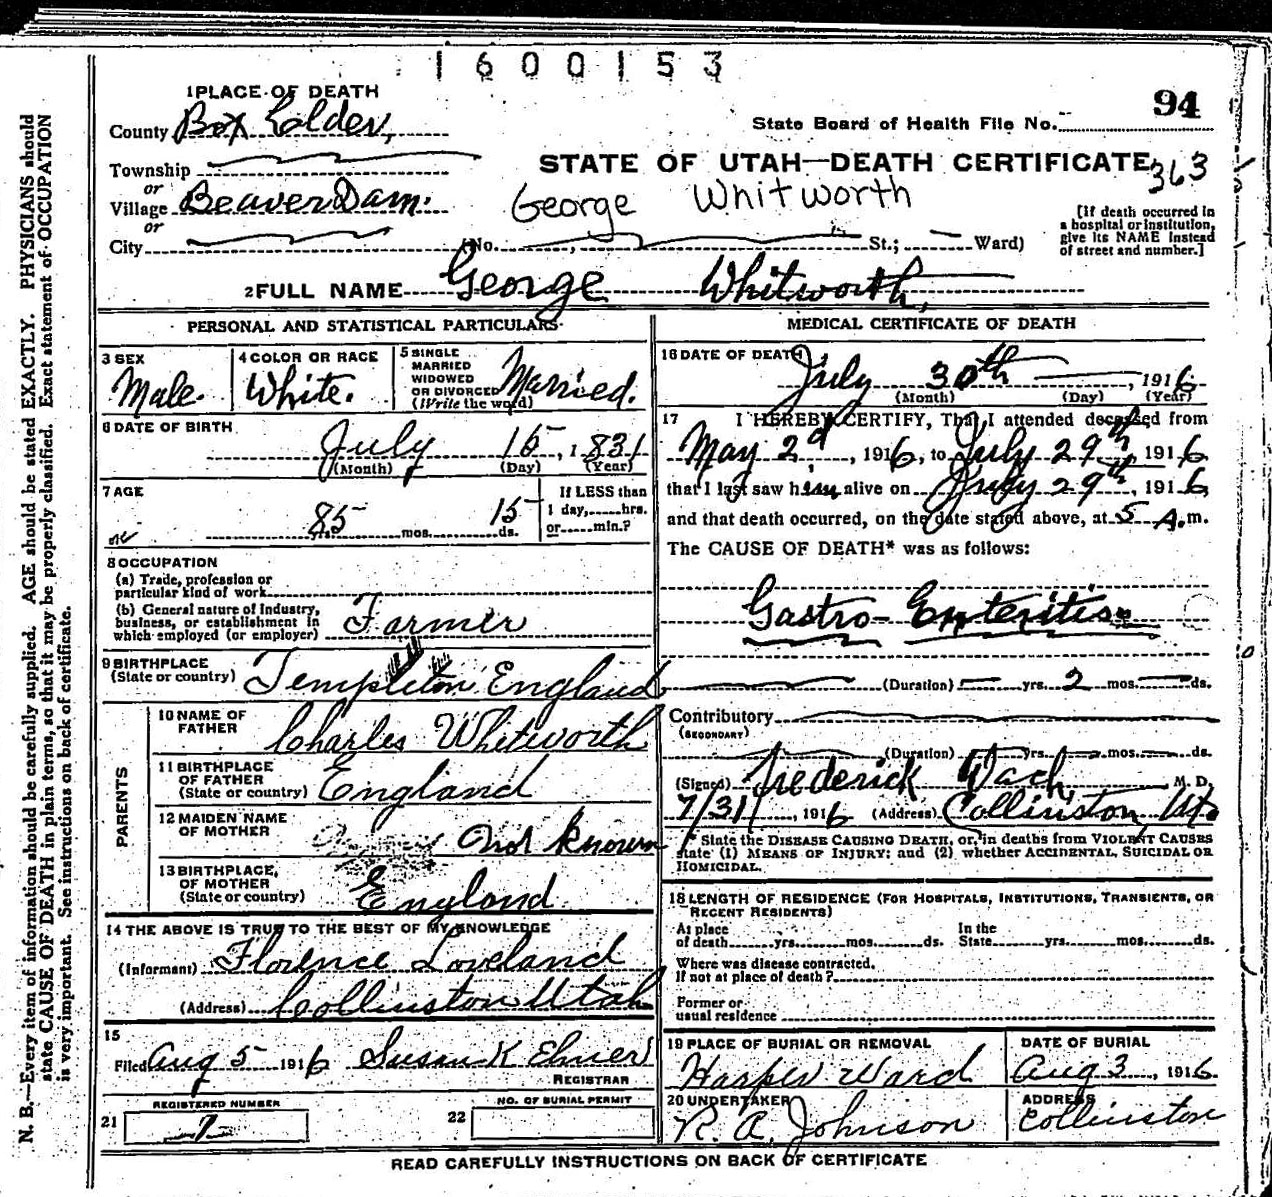 1600153
1 PLACE OF DEATH
94
County Box Elder,
State Board of Health File No.
Township
STATE OF UTAH—DEATH CERTIFICATE 363
or
Village Beaver Dam.
George Whitworth
or
City (No. St.; Ward)
[If death occurred in
a hospital or institution,
give its NAME instead
of street and number.]
2 FULL NAME George Whitworth,
PERSONAL AND STATISTICAL PARTICULARS
3 SEX
Male.
4 COLOR OR RACE
White.
5 SINGLE
MARRIED
WIDOWED
OR DIVORCED
(Write the word)
Married.
6 DATE OF BIRTH
July 15, 1831
(Month) (Day) (Year)
7 AGE
85 mos. 15 ds.
If LESS than
1 day, hrs.
or min.?
8 OCCUPATION
(a) Trade, profession or
particular kind of work
(b) General nature of Industry,
business, or establishment in
which employed (or employer) Farmer
9 BIRTHPLACE
(State or country) Templeton England
PARENTS
10 NAME OF
FATHER Charles Whitworth
11 BIRTHPLACE
OF FATHER
(State or country) England
12 MAIDEN NAME
OF MOTHER Not known
13 BIRTHPLACE,
OF MOTHER
(State or country) England
14 THE ABOVE IS TRUE TO THE BEST OF MY KNOWLEDGE
(Informant) Florence Loveland
(Address) Collinston Utah
15
Filed Aug 5 1916 Susan K
REGISTRAR
21 REGISTERED NUMBER
7
22 NO. OF BURIAL PERMIT
MEDICAL CERTIFICATE OF DEATH
16 DATE OF DEATH
July 30th, 1916
(Month) (Day) (Year)
17 I HEREBY CERTIFY, That I attended deceased from
May 2d, 1916, to July 29th, 1916
that I last saw him alive on July 29th, 1916,
and that death occurred, on the date stated above, at 5 A.m.
The CAUSE OF DEATH* was as follows:
Gastro-Enteritis
(Duration) yrs. 2 mos. ds.
Contributory
(SECONDARY)
(Duration) yrs. mos. ds.
(Signed) Frederick Wach, M. D.
7/31, 1916 (Address) Collinston, Ut.
* State the DISEASE CAUSING DEATH, or, in deaths from VIOLENT CAUSES
state (1) MEANS OF INJURY; and (2) whether ACCIDENTAL, SUICIDAL OR
HOMICIDAL.
18 LENGTH OF RESIDENCE (FOR HOSPITALS, INSTITUTIONS, TRANSIENTS, OR
RECENT RESIDENTS)
At place
of death yrs. mos. ds.
In the
State yrs. mos. ds.
Where was disease contracted,
If not at place of death?
Former or
usual residence
19 PLACE OF BURIAL OR REMOVAL
Harper Ward
DATE OF BURIAL
Aug 3, 1916
20 UNDERTAKER
R. A. Johnson
ADDRESS
Collinston
READ CAREFULLY INSTRUCTIONS ON BACK OF CERTIFICATE
N. B.—Every item of information should be carefully supplied. AGE should be stated EXACTLY. PHYSICIANS should
state CAUSE OF DEATH in plain terms, so that it may be properly classified. Exact statement of OCCUPATION
is very important. See instructions on back of certificate.